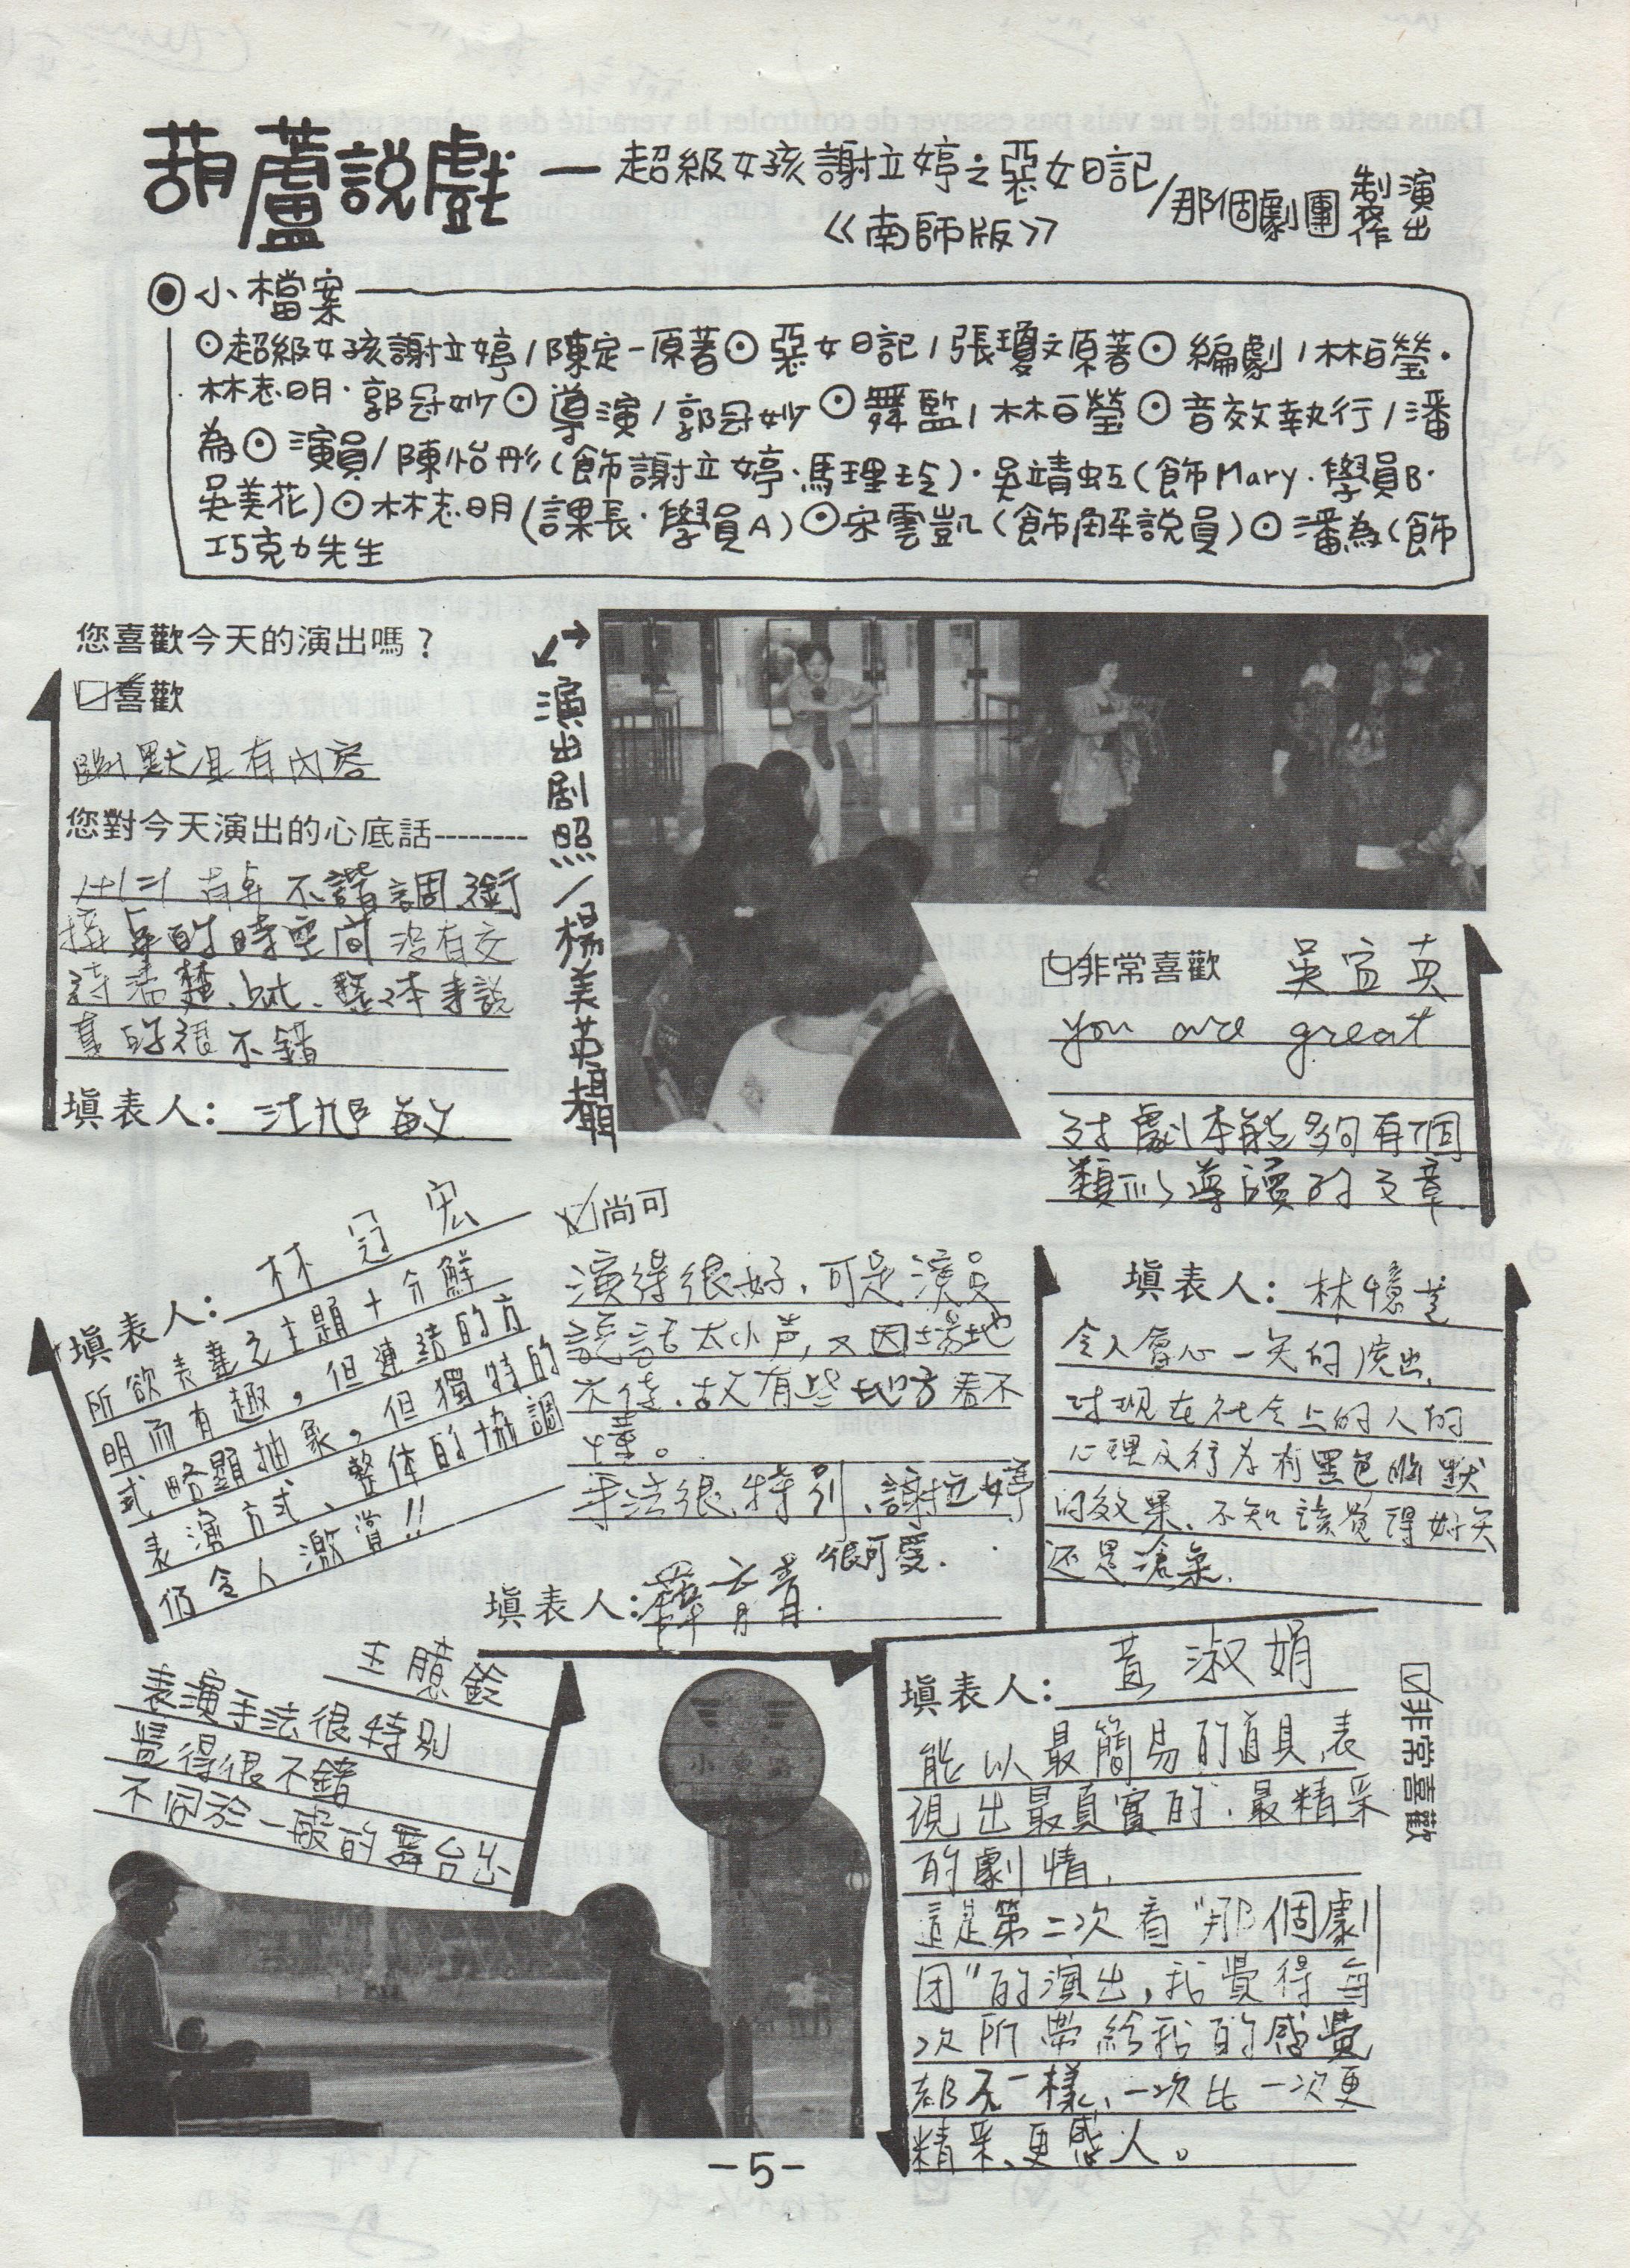 葫蘆說戲—超級女孩謝立婷之惡女日記/那個劇團製作演出
《南師版》
小檔案
⊙超級女孩謝立婷/陳定一原著⊙惡女日記/張瓊文原著⊙編劇/林百瑩·
林志明·郭冠妙⊙導演/郭冠妙⊙舞監/林百瑩⊙音效執行/潘
為⊙演員/陳怡彤(飾謝立婷·馬理玲)·吳靖虹(飾Mary·學員B·
吳美花)⊙林志明(課長·學員A)⊙宋雲凱(飾解說員)⊙潘為(飾
巧克力先生
您喜歡今天的演出嗎?
喜歡
幽默且有內容
您對今天演出的心底話--------
有點不諧調,銜
接點的時空間沒有交
待清楚、點、整本來說
真的很不錯
填表人:汪旭敏
演出剧照/楊美英輯
非常喜歡 吳宜英
you are great
對劇本能夠有個
類似導讀的文章.
填表人:林冠宏
所欲表達之主題十分鮮
明而有趣,但連結的方
式略顯抽象,但獨特的
表演方式、整体的協調
仍令人激賞!!
尚可
演得很好,可是演員
說話太小声,又因場地
不佳,故有些地方看不
懂。
手法很特別、謝立婷
很可愛.
填表人:薛育青.
填表人:林憶芝
令人會心一笑的演出,
对现在社会上的人的
心理及行为有黑色幽默
的效果、不知該覺得好笑
还是滄桑.
王臆鈴
表演手法很特別
覺得很不錯
不同於一般的舞台出
小東路
填表人:黃淑娟
非常喜歡
能以最簡易的道具,表
現出最真實的,最精采
的劇情,
這是第二次看"那個劇
团"的演出,我覺得每
次所帶給我的感覺
都不一樣,一次比一次更
精采、更感人。
-5-